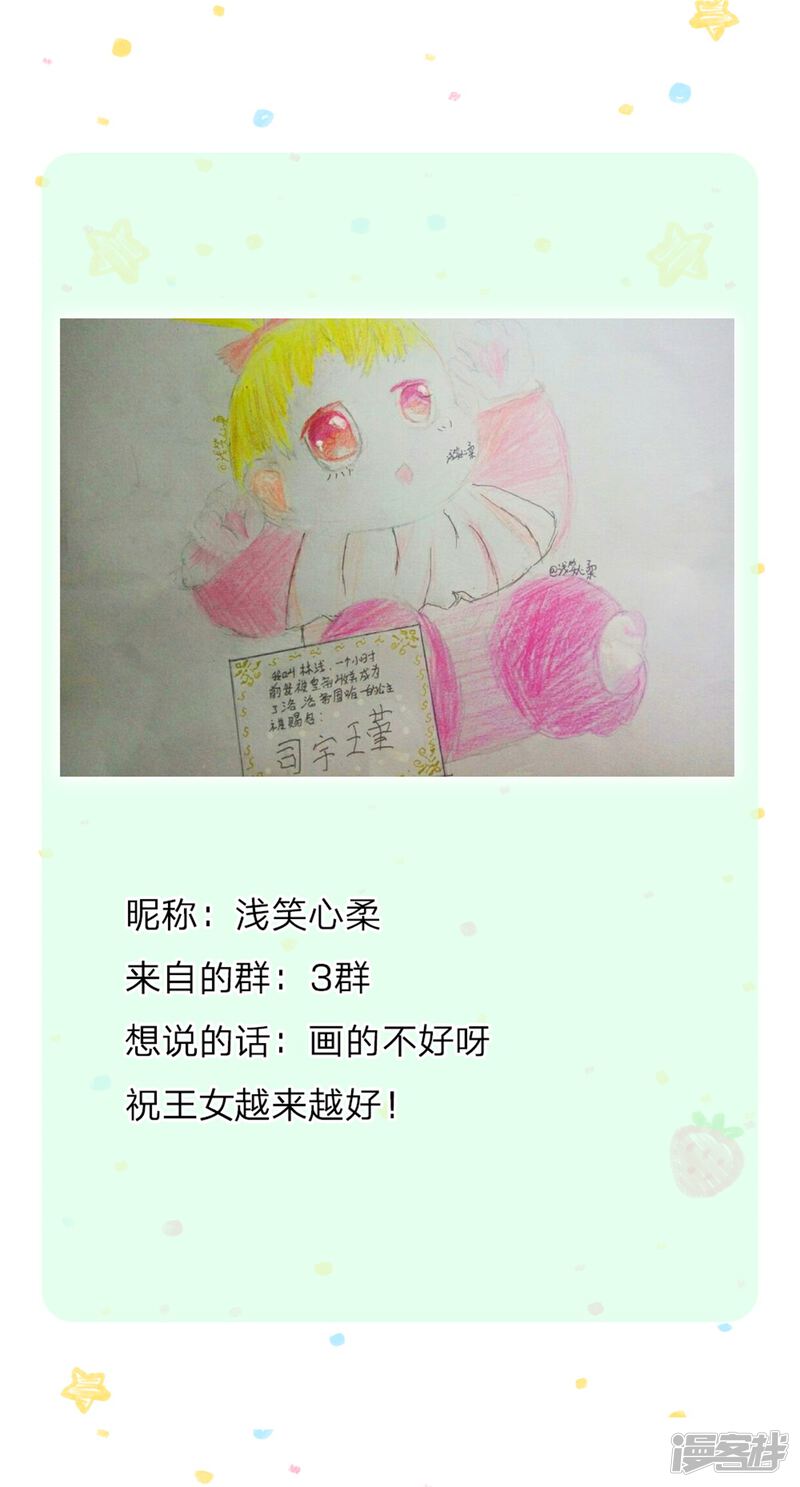 @浅笑心柔
浅笑心柔
@浅笑心柔
我叫林浅，一个小时
前我被皇帝收养成为
了洛洛帝国唯一的公主
被赐名：
司宇瑾
昵称：浅笑心柔
来自的群：3群
想说的话：画的不好呀
祝王女越来越好！
漫客栈